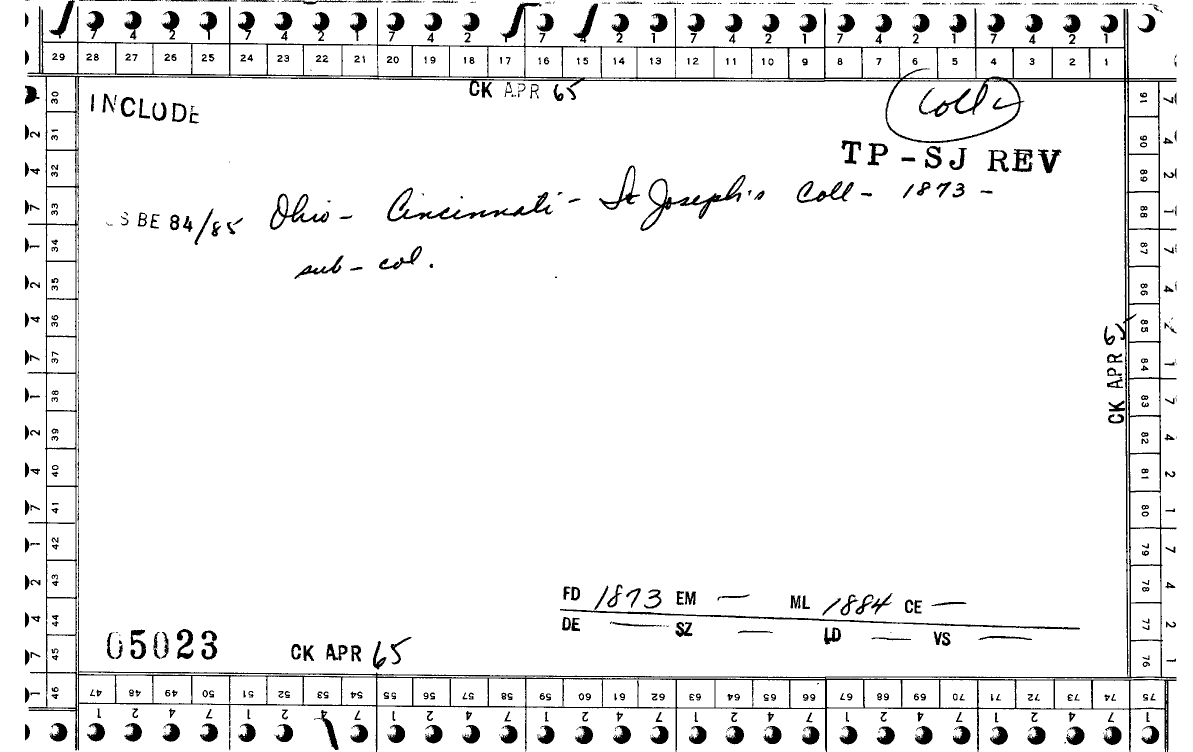 7 4 2 1 7 4 2 1 7 4 2 1 7 4 2 1 7 4 2 1 7 4 2 1 7 4 2 1
29 28 27 26 25 24 23 22 21 20 19 18 17 16 15 14 13 12 11 10 9 8 7 6 5 4 3 2 1
CK APR 65
INCLUDE
Coll
TP-SJ REV
US BE 84/85 Ohio - Cincinnati - St Joseph's Coll - 1873 -
sub-col.
CK APR 65
FD 1873 EM — ML 1884 CE —
DE — SZ — LD — VS —
05023 CK APR 65
30 31 32 33 34 35 36 37 38 39 40 41 42 43 44 45 46
91 90 89 88 87 86 85 84 83 82 81 80 79 78 77 76 75
47 48 49 50 51 52 53 54 55 56 57 58 59 60 61 62 63 64 65 66 67 68 69 70 71 72 73 74 75
1 2 4 7 1 2 4 7 1 2 4 7 1 2 4 7 1 2 4 7 1 2 4 7 1 2 4 7 1